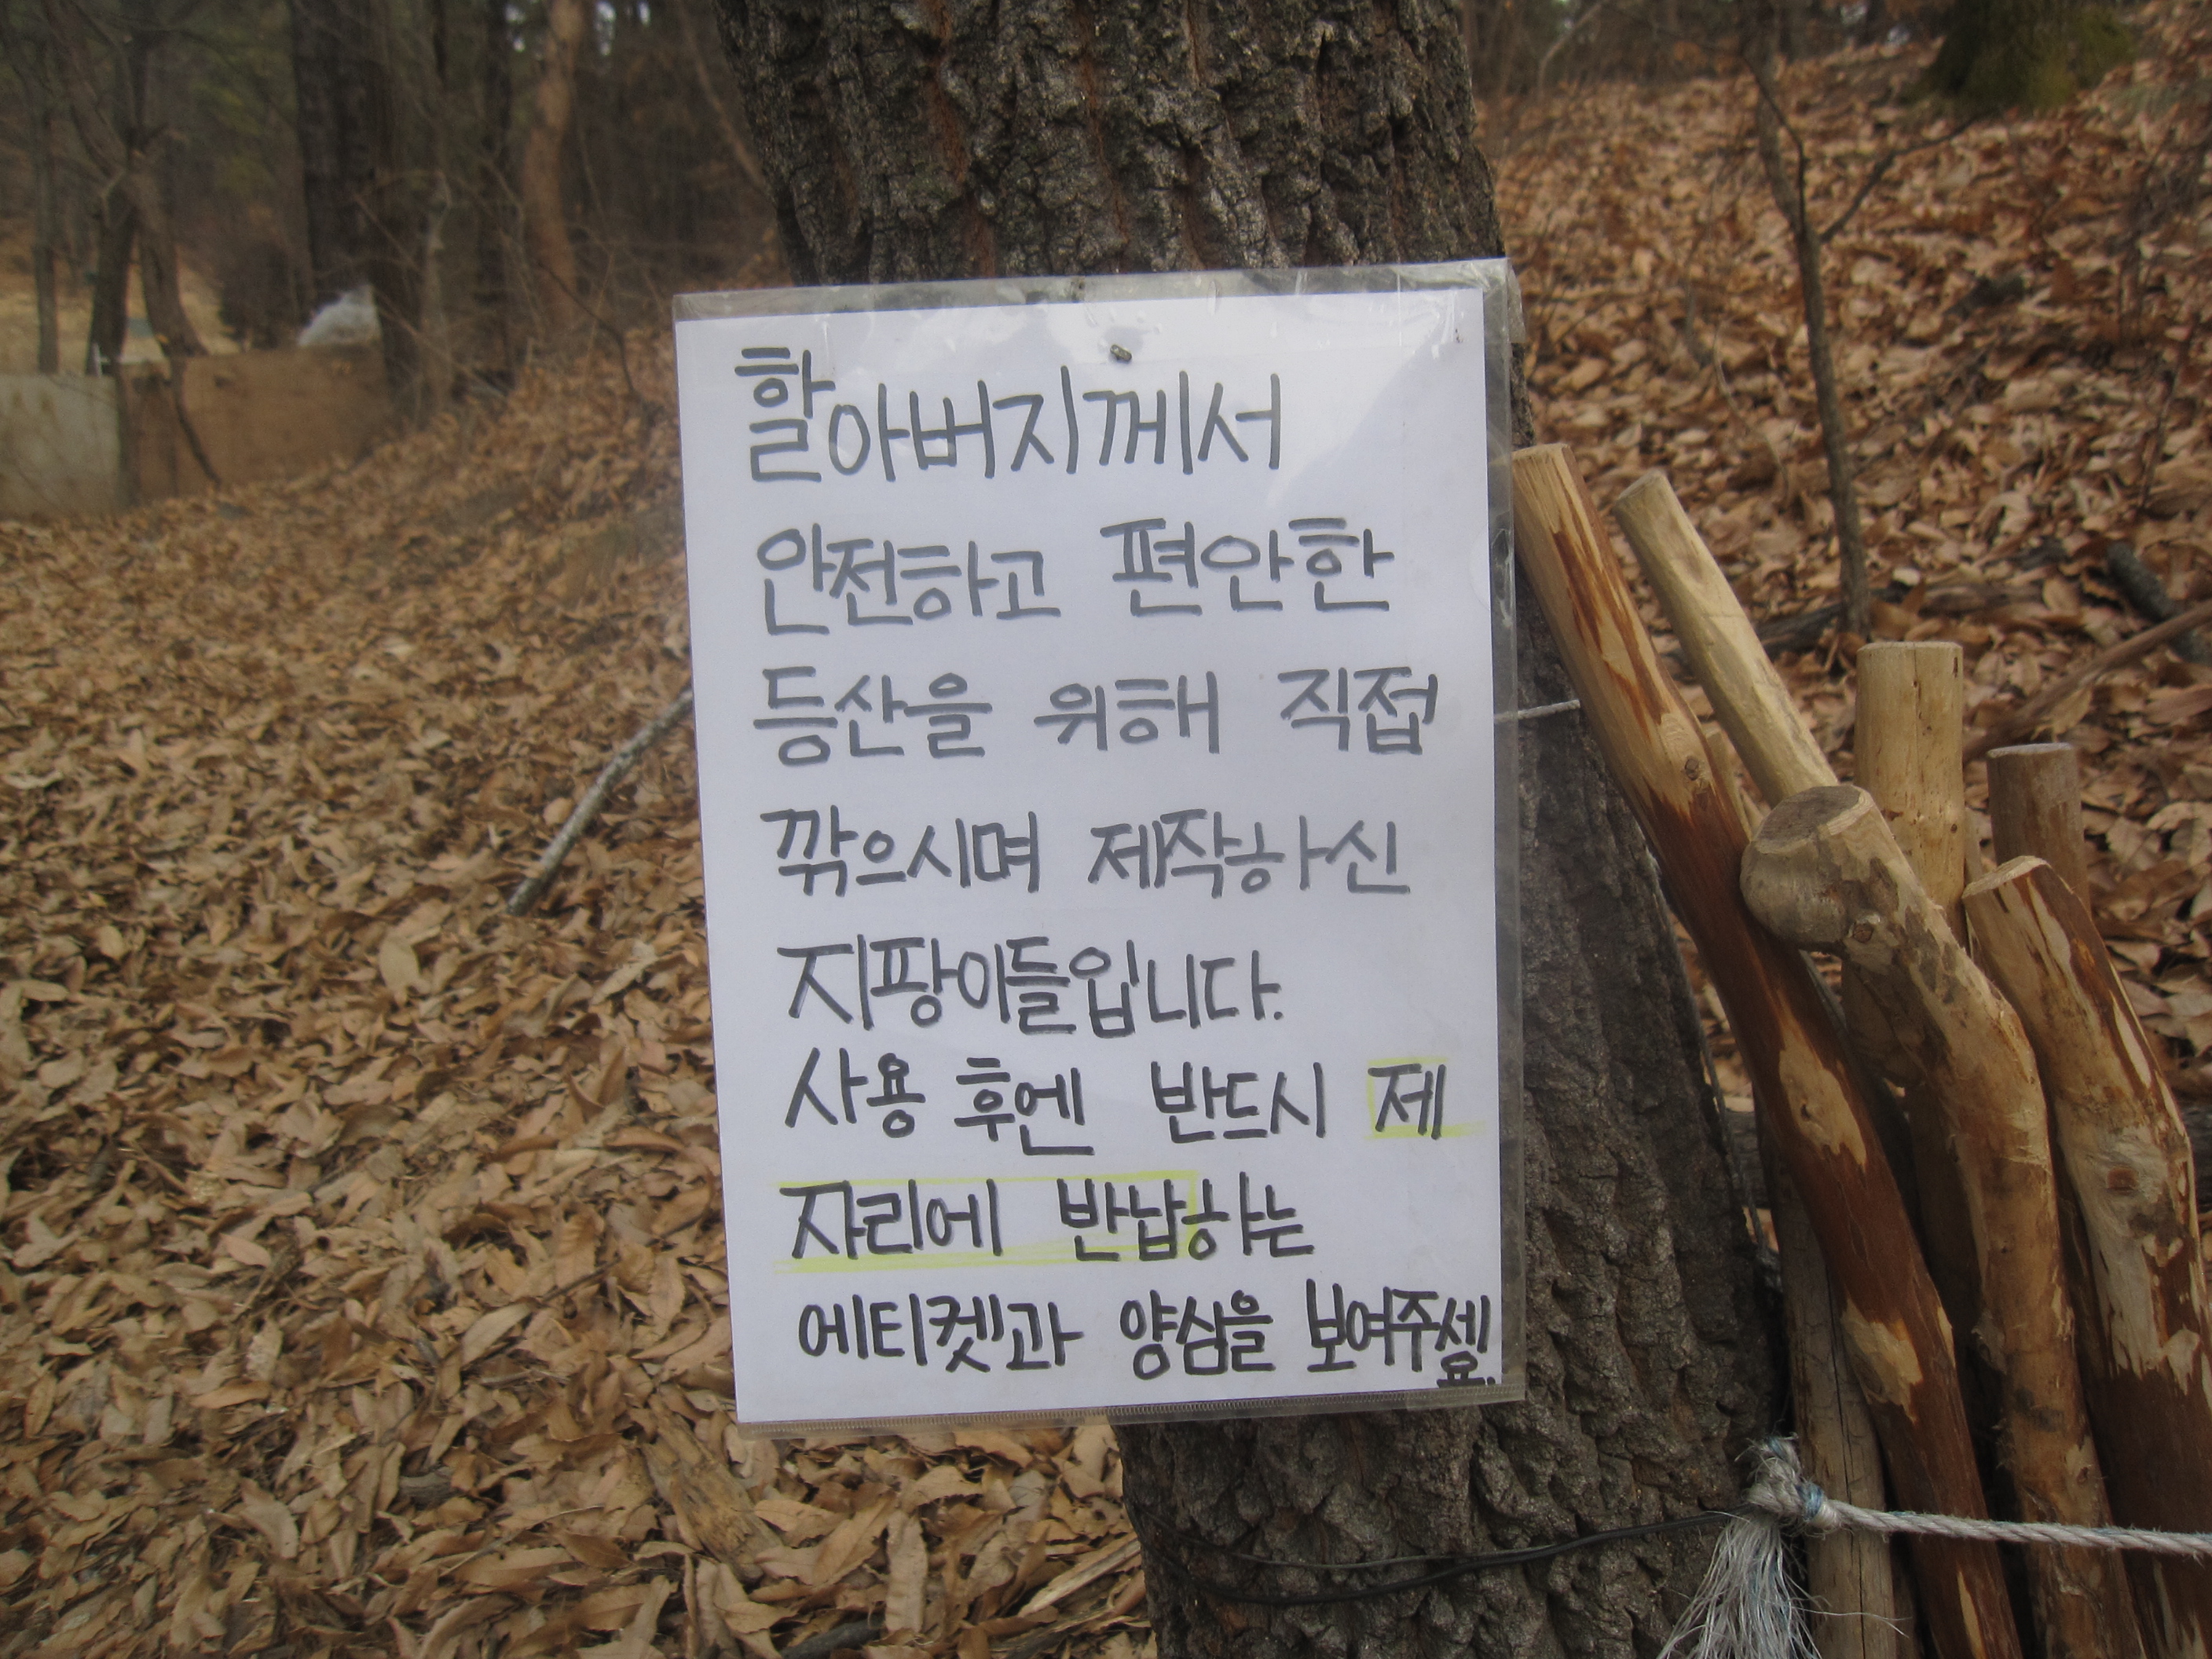 할아버지께서
안전하고 편안한
등산을 위해 직접
깎으시며 제작하신
지팡이들입니다.
사용 후엔 반드시 제
자리에 반납하는
에티켓과 양심을 보여주세요.